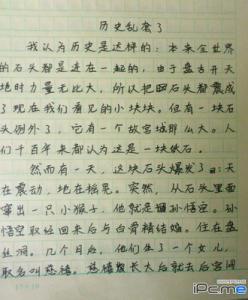 历史乱套了
我认为历史是这样的：本来全世界
的石头都是连在一起的，由于盘古开天
地时力量无比大，所以把石头都震成
了现在我们看见的小块块。但有一块石
头例外了，它有一个故宫城那么大。人
们千百年来都认为这是一块铁石。
然而有一天，这块石头爆发了：天
在震动，地在摇晃。突然，从石头里面
窜出一只小猴子，他就是猴孙悟空。孙
悟空取经回来后与白骨精结婚。住在盘
丝洞。几个月后，他们生了一个女儿，
取名叫慈禧。慈禧长大后就去后宫闹
iPcme